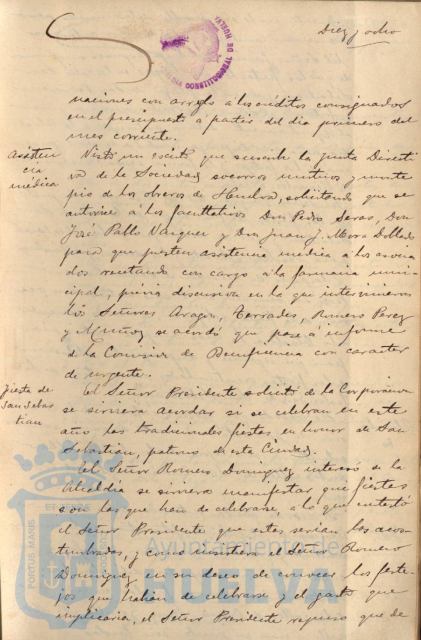 Diez y ocho
ALCALDIA CONSTITUCIONAL DE HUELVA
naciones con arreglo a los créditos consignados
en el presupuesto á partir del día primero del
mes corriente.
Asisten
cia
médica
Visto un escrito que suscribe la Junta Directi
va de la Sociedad socorros mutuos y monte
pio de los obreros de Huelva, solicitando que se
autorice á los facultativos Don Pedro Seras, Don
José Pablo Vazquez y Don Juan J. Mora Doblado
para que presten asistencia médica a los asocia
dos recetando con cargo á la farmacia muni
cipal; previa discusion en la que intervinieron
los Señores Aragon, Terrades, Romero Perez
y Muñoz se acordó que pase á informe
de la Comision de Beneficencia con caracter
de urgente.
Fiesta de
San Sebas
tian
El Señor Presidente solicitó de la Corporacion
se sirviera acordar si se celebran en este
año las tradicionales fiestas, en honor de San
Sebastian, patrono de esta Ciudad.
El Señor Romero Dominguez interesó de la
Alcaldia se sirviera manifestar que fiestas
son las que han de celebrarse, a lo que contestó
el Señor Presidente que estas serian las acos
tumbradas, y como insistiera el Señor Romero
Dominguez en su deseo de conocer los feste
jos que habian de celebrarse y el gasto que
implicaria, el Señor Presidente repuso que de
PORTUS MARIS
Ayuntamiento de
HUELVA